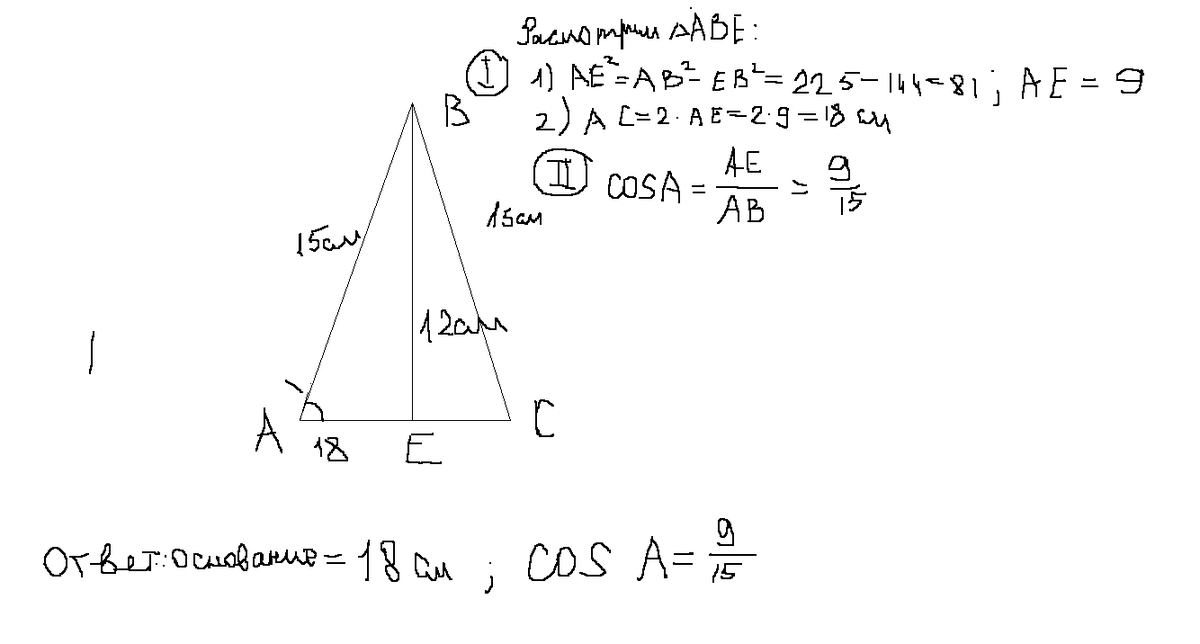 Рассмотрим ΔABE:
I 1) AE²=AB²-EB²=225-144=81; AE=9
2) AC=2·AE=2·9=18 см
II cosA = AE/AB = 9/15
B
15см
15см
12см
A
18
E
C
Ответ: основание = 18 см; cos A = 9/15